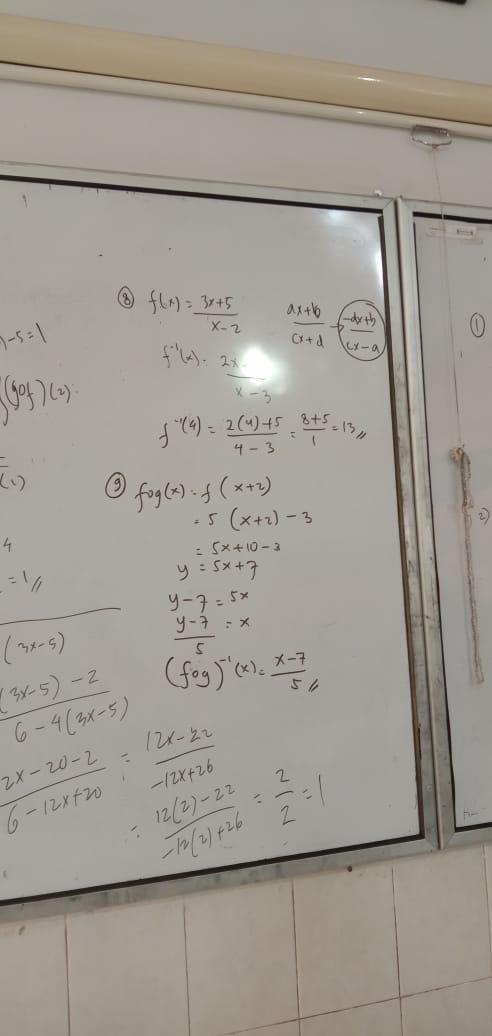 )-5=1
(gof)(2)
(1)
4
=1//
(3x-5)
(3x-5)-2
6-4(3x-5)
2x-20-2 = 12x-22
6-12x+20 -12x+26
= 12(2)-22 = 2 = 1
-12(2)+26 2
⑧ f(x) = 3x+5
x-2
ax+b → -dx+b
cx+d cx-a
f⁻¹(x) = 2x
x-3
f⁻¹(4) = 2(4)+5 = 8+5 = 13//
4-3 1
⑨ fog(x) = f(x+2)
= 5(x+2)-3
= 5x+10-3
y = 5x+7
y-7 = 5x
y-7 = x
5
(fog)⁻¹(x) = x-7
5//
①
2)